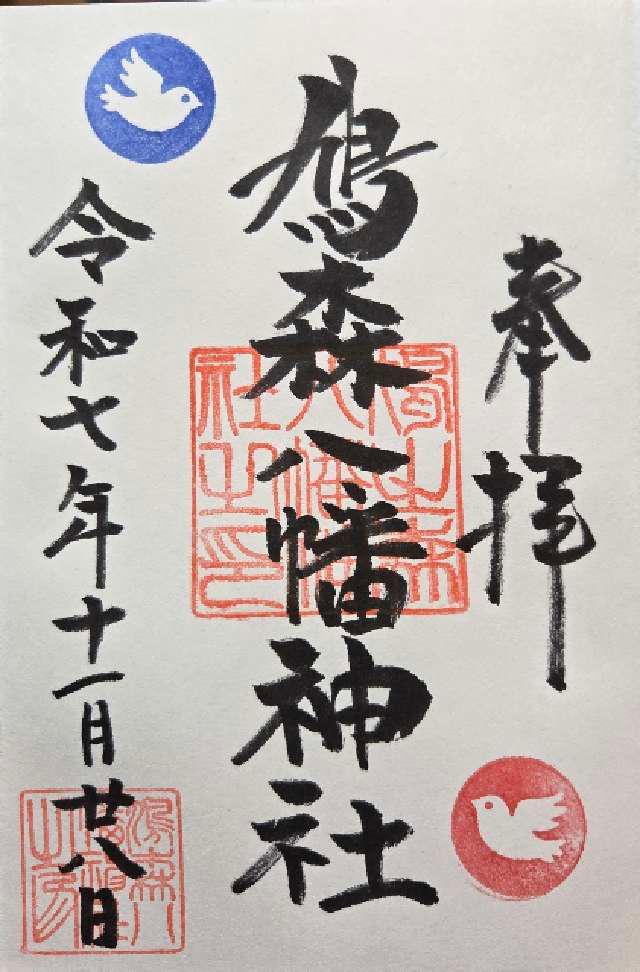 奉拝
鳩森八幡神社
令和七年十一月廿八日